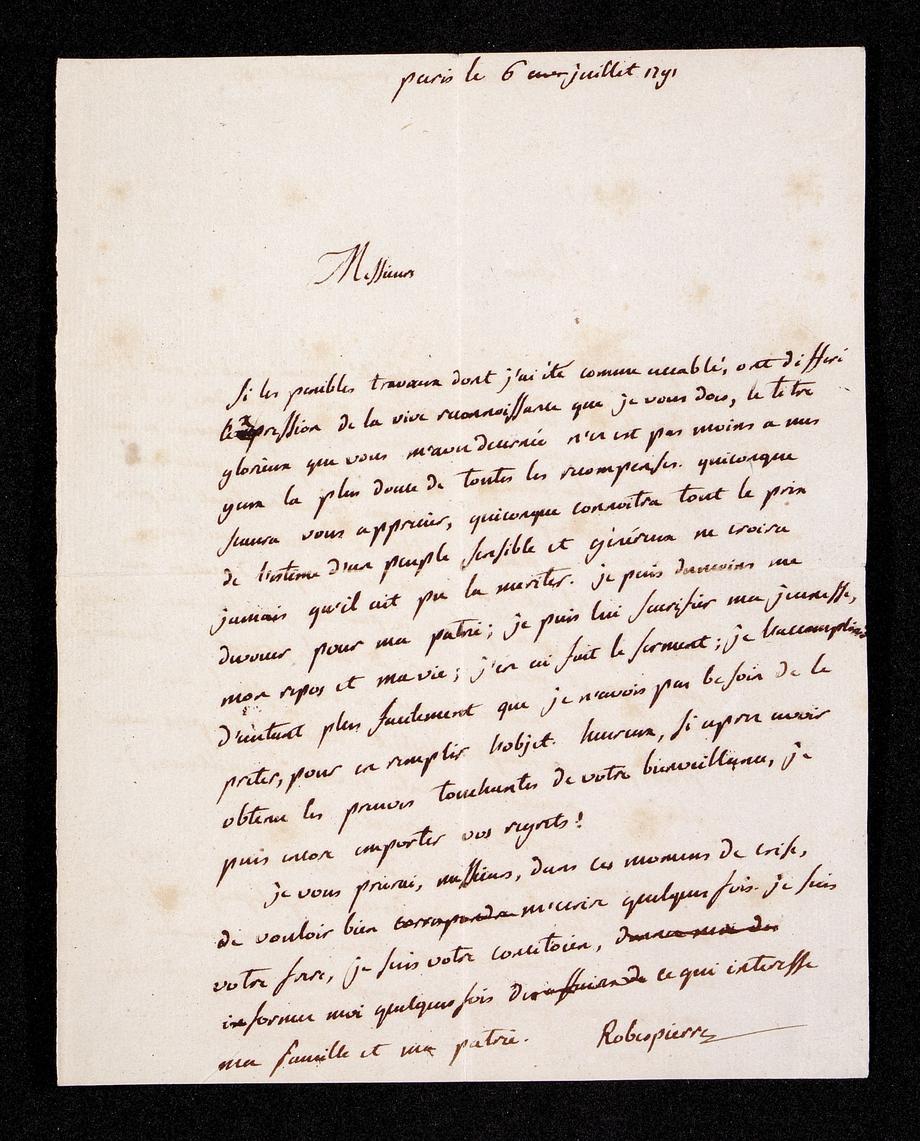 paris le 6 juillet 1791
Messieurs
Si les penibles travaux dont j'ai été comme accablé, ont différé
l'expression de la vive reconnoissance que je vous dois, le titre
glorieux que vous m'avez decerné n'en est pas moins a mes
yeux la plus douce de toutes les recompenses. quiconque
scaura vous apprecier, quiconque connoitra tout le prix
de l'estime d'un peuple sensible et généreux ne croira
jamais qu'il ait pu la meriter. je puis du moins me
devouer pour ma patrie; je puis lui sacrifier ma jeunesse,
mon repos et ma vie; j'en ai fait le serment; je l'accomplirai
d'autant plus facilement que je n'avois pas besoin de le
preter, pour en remplir l'objet. heureux, si apres avoir
obtenu les preuves touchantes de votre bienveillance, je
puis encore emporter vos regrets!
je vous prierai, messieurs, dans ces momens de crise,
de vouloir bien correspondre m'ecrire quelques fois. je suis
votre frere, je suis votre concitoien,
informez moi quelques fois de ce qui interesse
ma famille et ma patrie. Robespierre